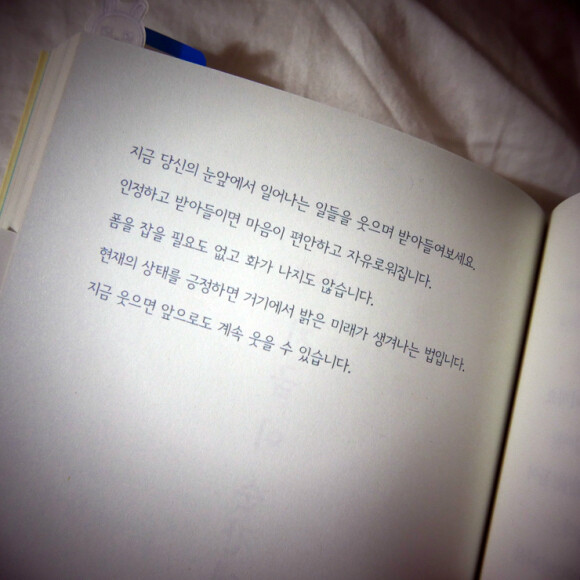 지금 당신의 눈앞에서 일어나는 일들을 웃으며 받아들여보세요.
인정하고 받아들이면 마음이 편안하고 자유로워집니다.
폼을 잡을 필요도 없고 화가 나지도 않습니다.
현재의 상태를 긍정하면 거기에서 밝은 미래가 생겨나는 법입니다.
지금 웃으면 앞으로도 계속 웃을 수 있습니다.